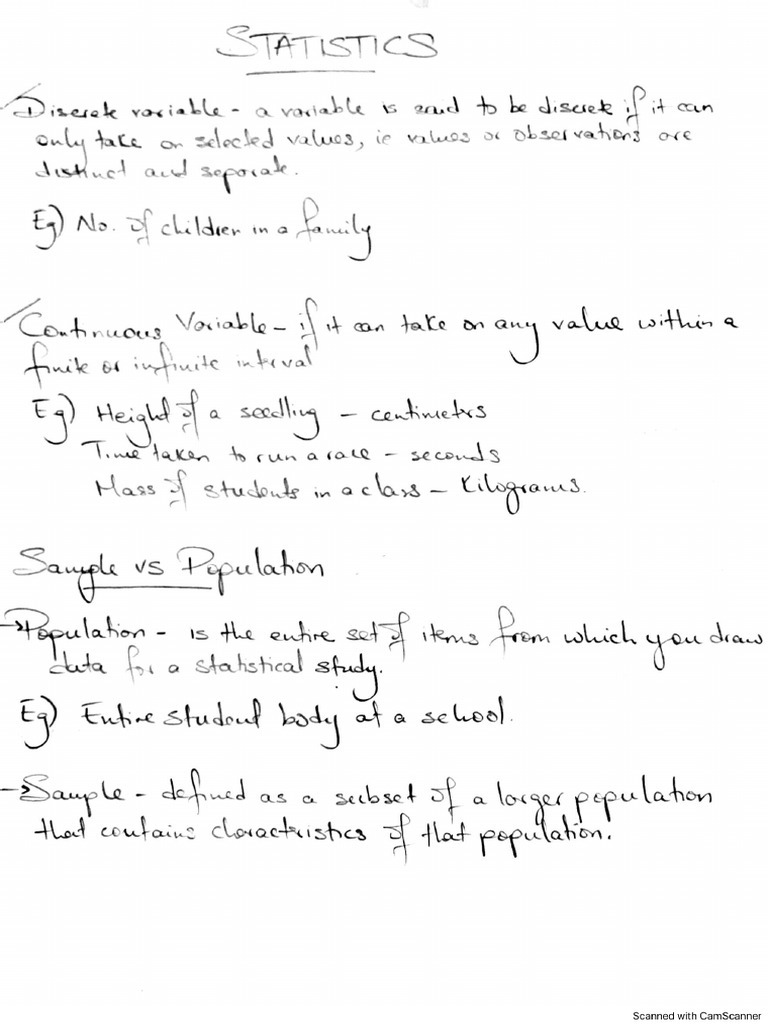 STATISTICS
Discrete variable - a variable is said to be discrete if it can
only take on selected values, ie values or observations are
distinct and separate.
Eg) No. of children in a family
Continuous Variable - if it can take on any value within a
finite or infinite interval
Eg) Height of a seedling - centimeters
Time taken to run a race - seconds
Mass of students in a class - Kilograms.
Sample vs Population
→ Population - is the entire set of items from which you draw
data for a statistical study.
Eg) Entire student body at a school.
→ Sample - defined as a subset of a larger population
that contains characteristics of that population.
Scanned with CamScanner